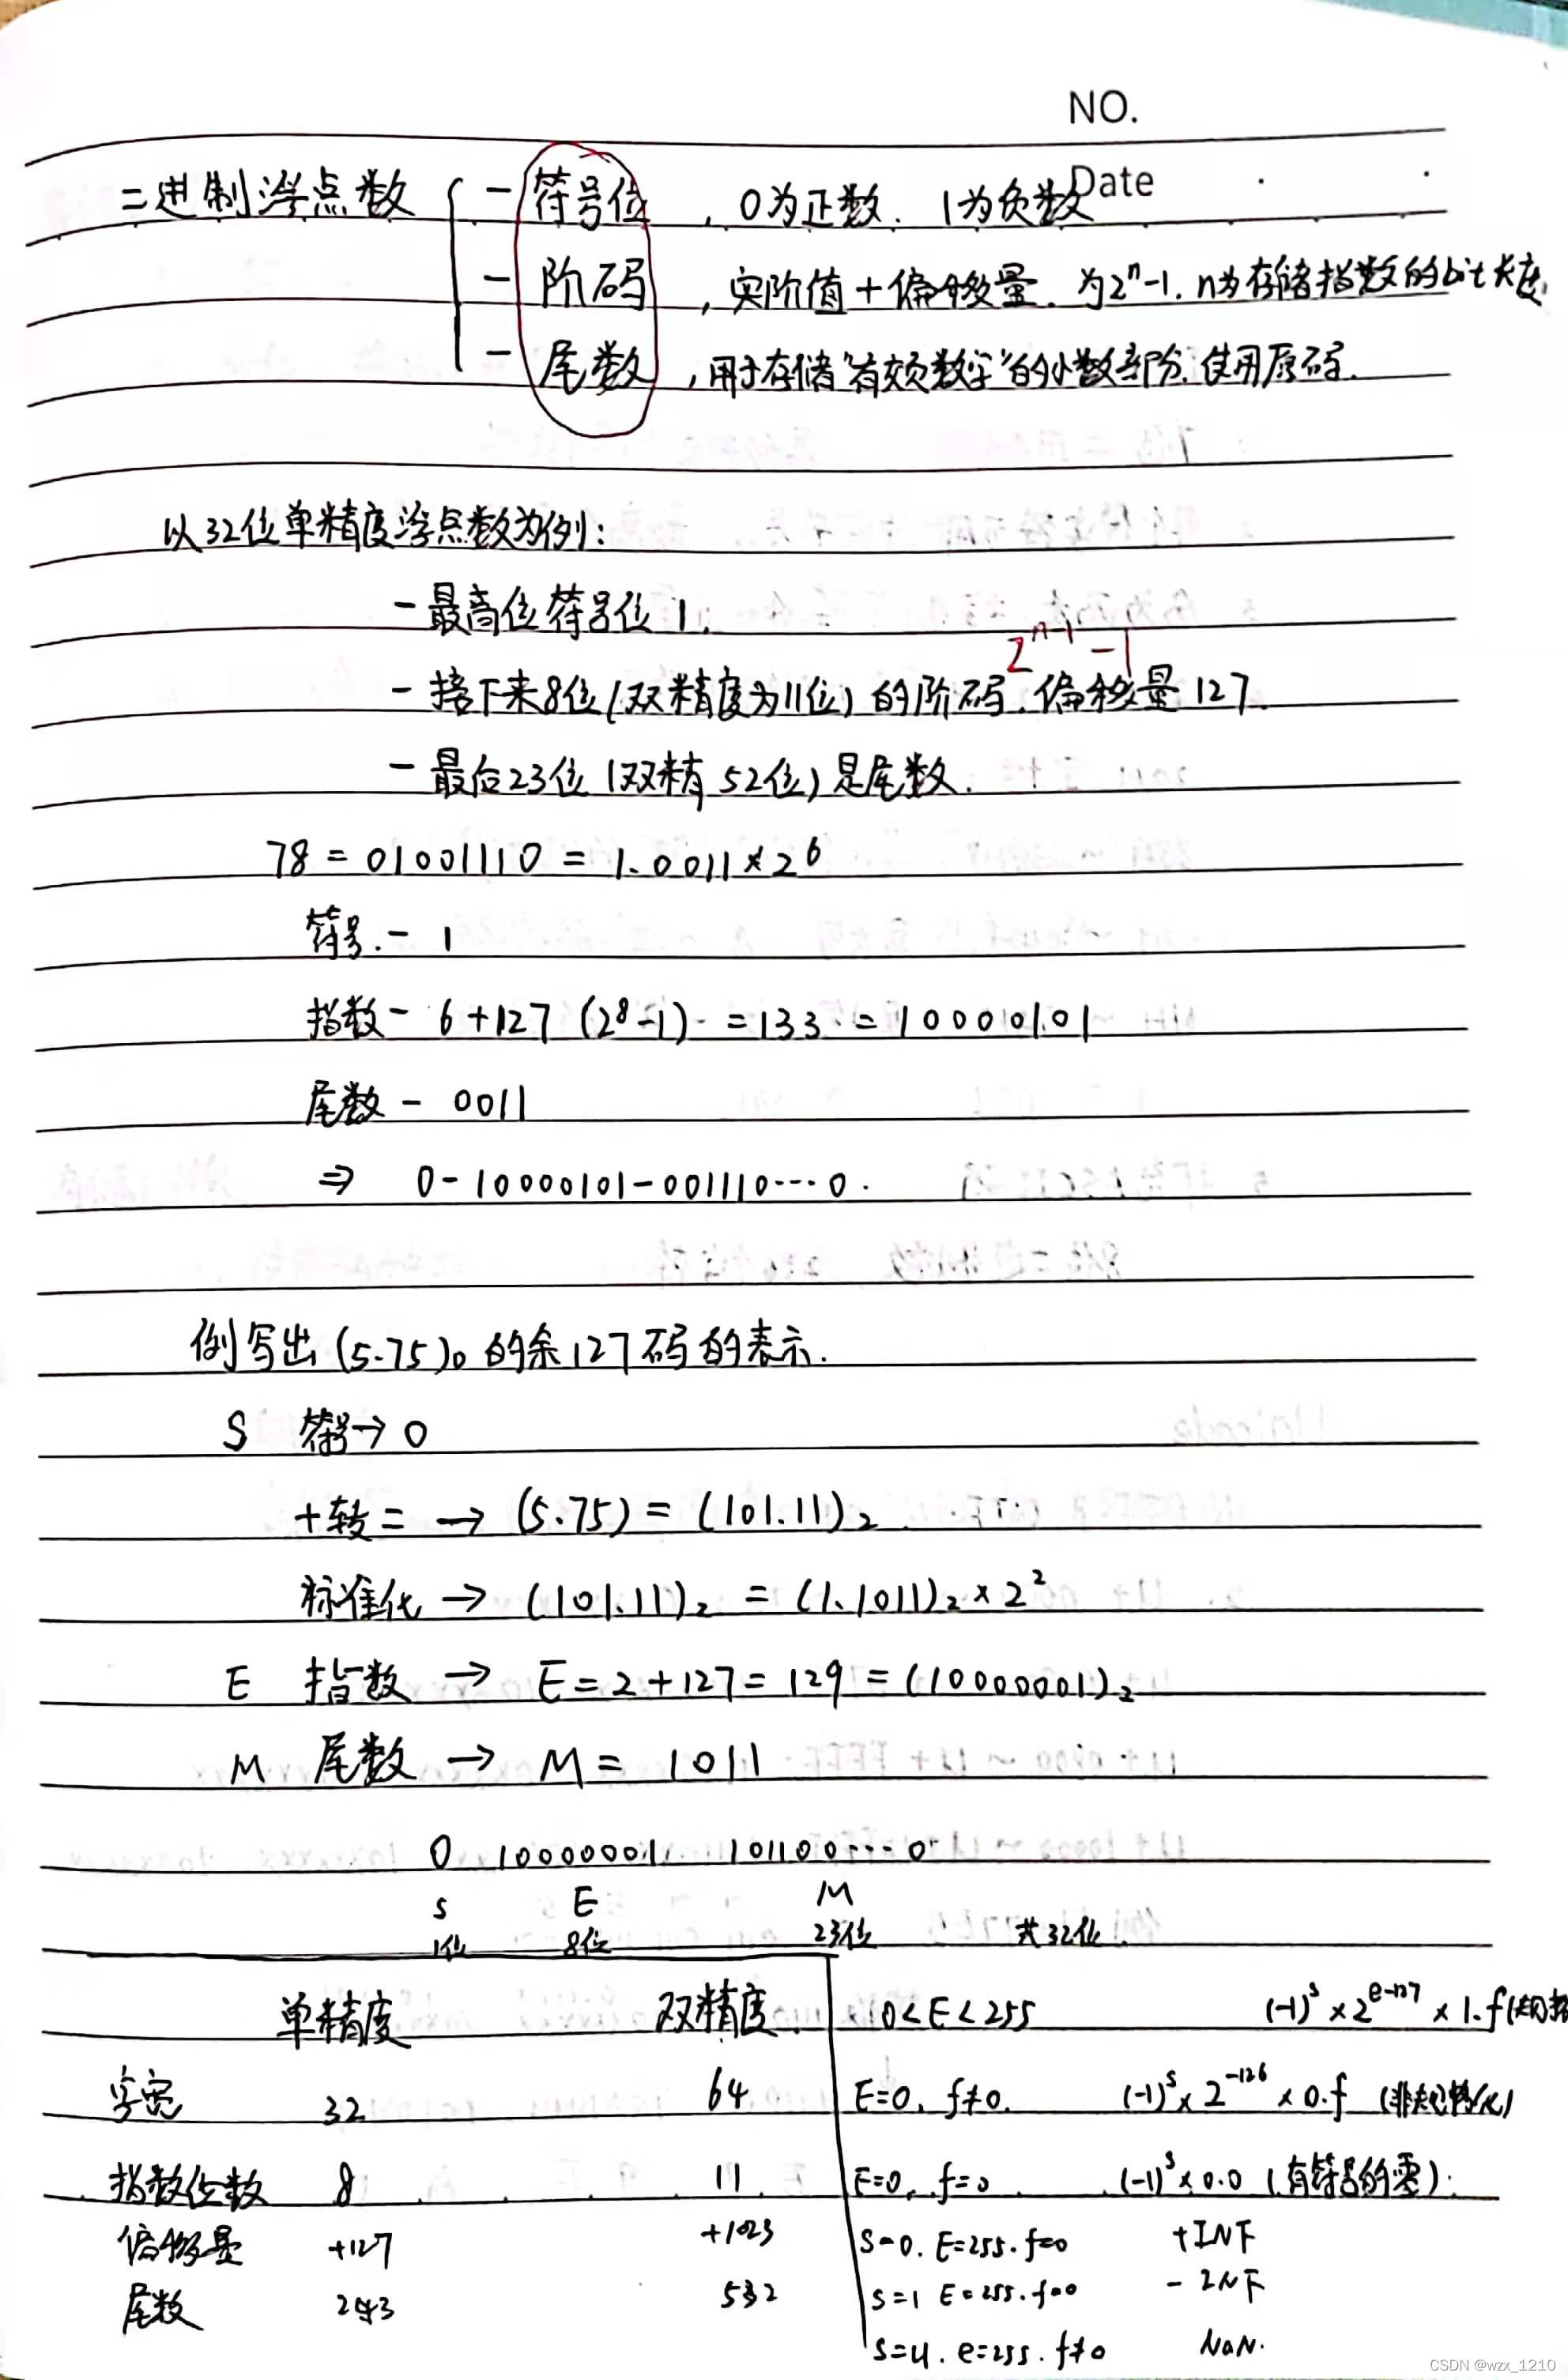 NO.
Date
二进制浮点数 - 符号位, 0为正数. 1为负数
- 阶码, 实阶值+偏移量. 为2^n-1. n为存储指数的bit长度
- 尾数, 用于存储"有效数字"的小数部分. 使用原码.
以32位单精度浮点数为例:
- 最高位符号位 1.
2^n-1 -1
- 接下来8位(双精度为11位)的阶码. 偏移量127.
- 最后23位(双精 52位)是尾数.
78 = 01001110 = 1.0011×2^6
符号. - 1
指数 - 6+127 (2^8-1) = 133 = 10000101
尾数 - 0011
⇒ 0-10000101-001110···0.
例写出(5.75)。的余127码的表示.
S 符号→0
十转二 → (5.75) = (101.11)₂
标准化 → (101.11)₂ = (1.1011)₂×2²
E 指数 → E=2+127=129=(10000001)₂
M 尾数 → M = 1011
0 10000001 101100···0
S E M
1位 8位 23位 共32位
单精度 双精度
字宽 32 64
指数位数 8 11
偏移量 +127 +1023
尾数
0<E<255 (-1)^s×2^e-127×1.f
E=0. f≠0. (-1)^s×2^-126×0.f (非规格化)
E=0, f=0 (-1)^s×0.0 (有符号的零).
S=0. E=255. f=0 +INF
S=1 E=255. f=0 -INF
e=255. f≠0 NaN.
CSDN @wzx_1210